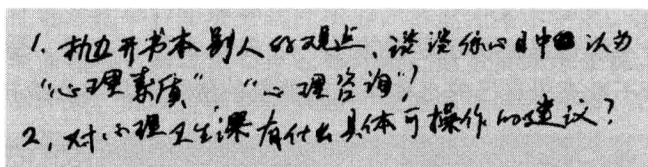 1. 抛开书本别人的观点、谈谈你心目中认为
“心理素质”“心理咨询”?
2, 对心理卫生课有什么具体可操作的建议?